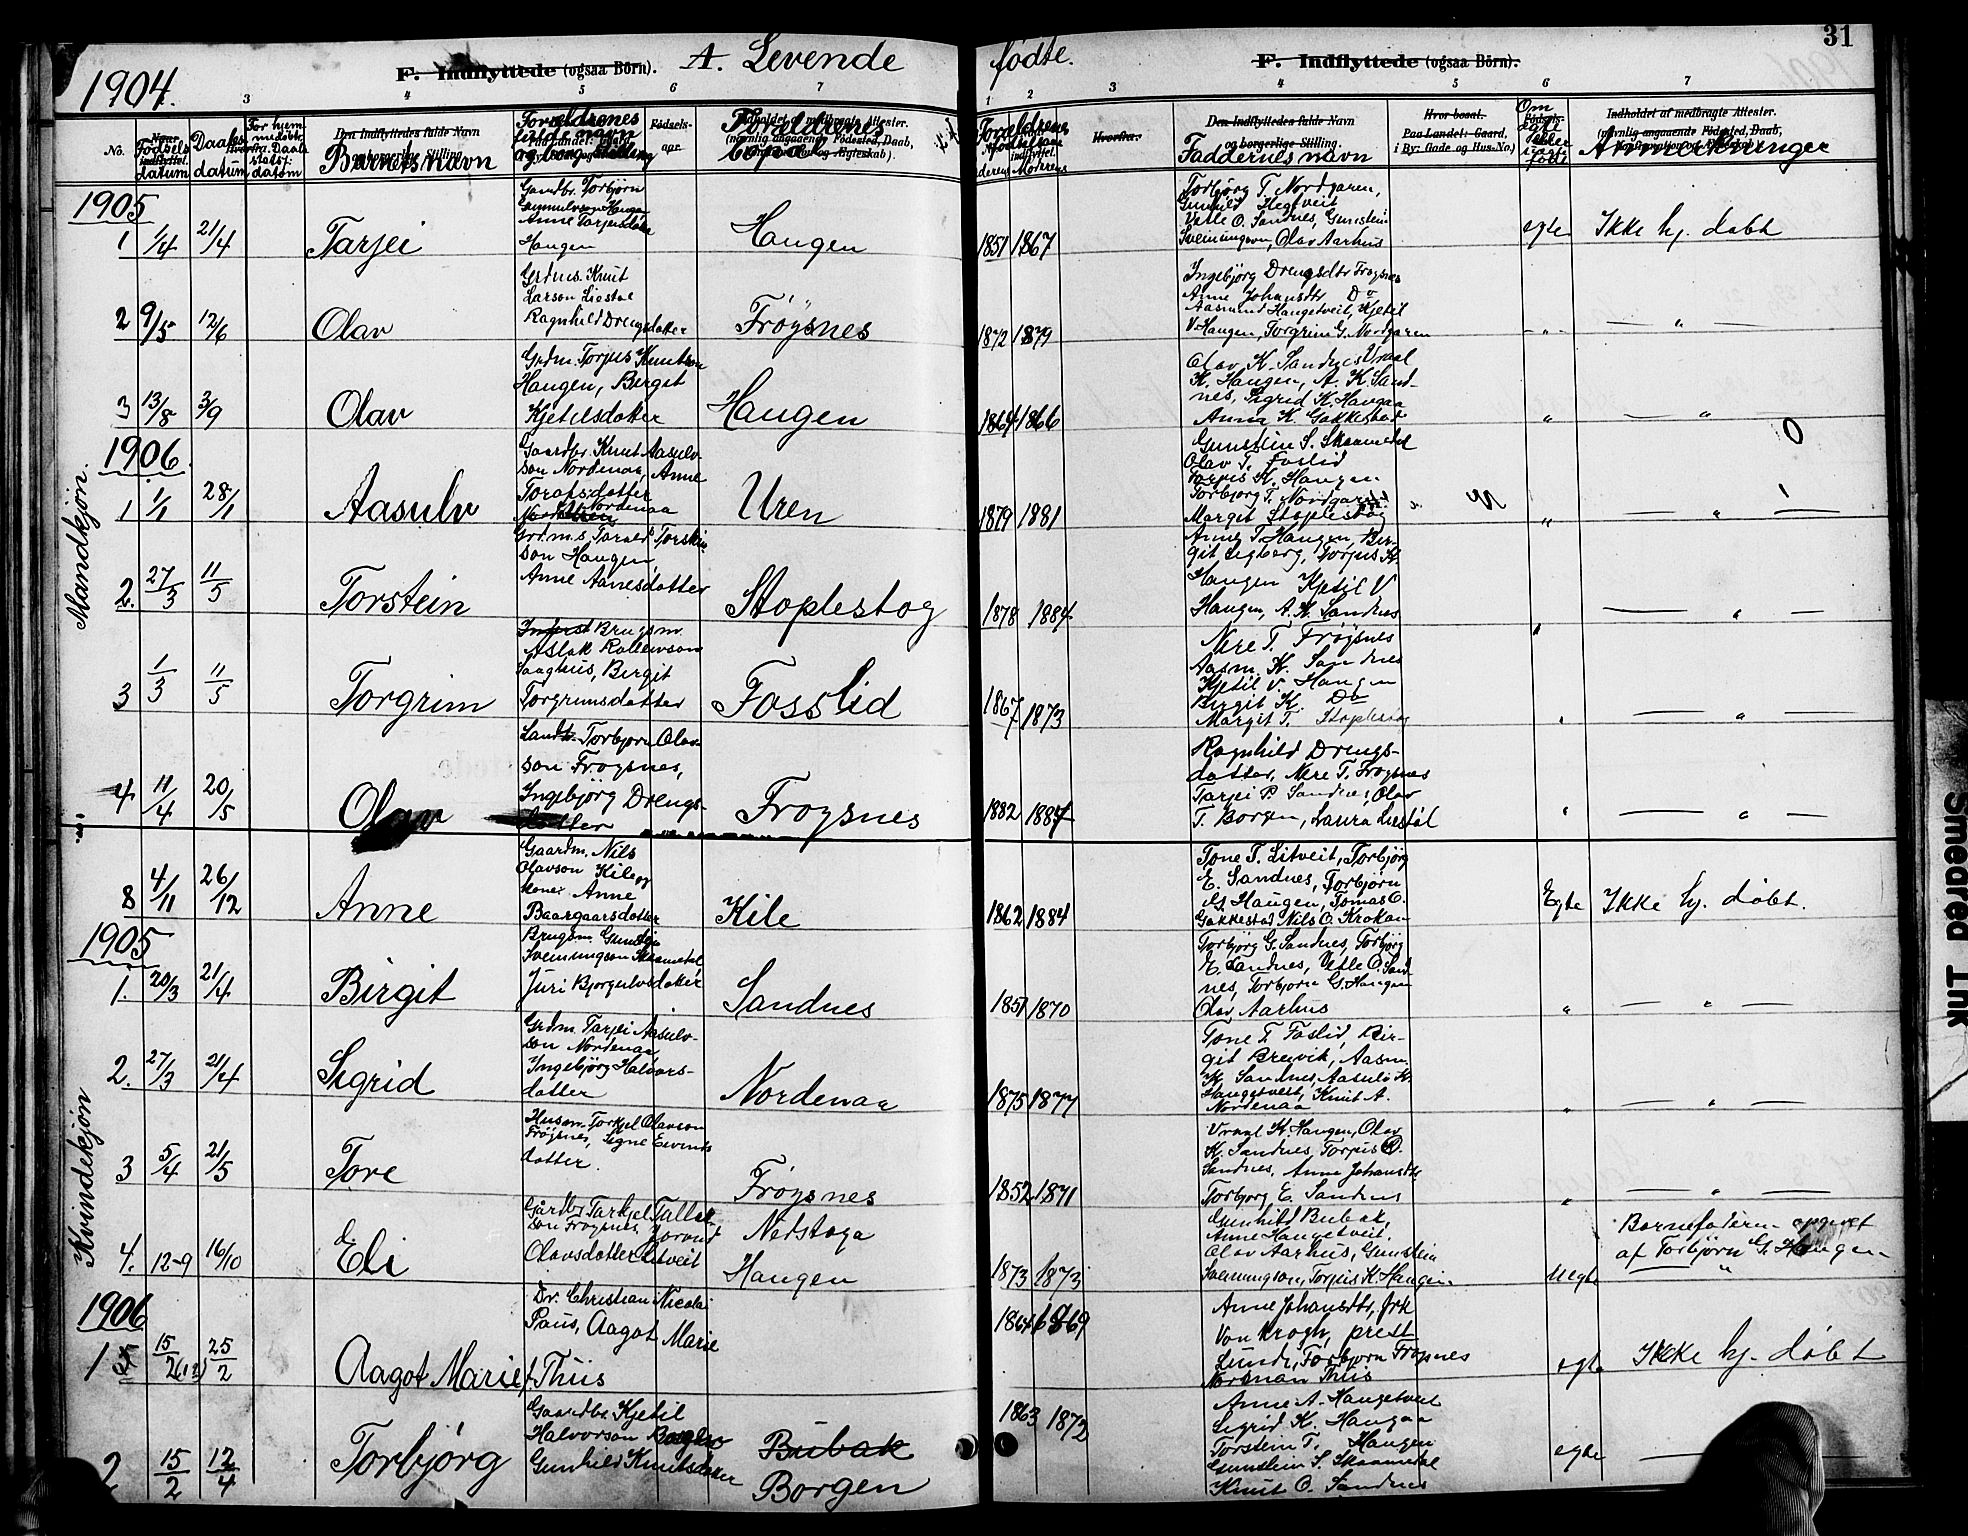 31
1904.
F. Indflyttede (ogsaa Börn). A. Levende
fødte. F. Indflyttede (ogsaa Börn).
3 4 5 6 7
1 2 3 4 5 6 7
No. Fødsels datum Daabs datum For hjemmedøbte: Daab stadf. datum
Den Indflyttedes fulde Navn og borgerlige Stilling.
Barnets navn
Forældrenes fulde navn og borg. stilling
Fødselsaar.
Indholdet af medbragte Attester. (navnlig angaaende Födested, Daab,
Forældrenes bopæl
Forældrenes fødselsaar
Hvorfra.
Den Indflyttedes fulde Navn og borgerlige Stilling.
Faddernes navn
Hvor bosat.
Paa Landet: Gaard,
i By: Gade og Hus-No.)
Om egte eller uegte født
Indholdet af medbragte Attester.
(navnlig angaaende Födested, Daab,
Anmerkninger
Mandkjøn.
1905
1 1/4 21/4 Tarjei
Gaardbr. Torbjørn
Gunnulvson Haugen
Anne Tarjeisdotter
Haugen
Haugen
1851 1867
Torbjørg T. Nordgaren,
Gunhild Hegtveit
Vetle O. Sandnes, Gunstein
Sveinungson, Olav Aarhus
egte Ikke hj. døbt
2 9/5 12/6 Olav
Grdms. Knut
Larson Liestøl
Ragnhild Drengsdotter
Frøysnes
1872 1879
Ingebjørg Drengsdtr Frøysnes
Anne Johansdtr Do
Aasmund Hangetveit, Kjetil
V Haugen, Torgrim G. Nordgaren
-"- — " —
3 13/8 3/9 Olav
Grdm. Torjus Knutson
Haugen, Birgit
Kjetilsdotter
Haugen
1864 1866
Olav K. Sandnes Vraal
K. Haugen, A. K. Sand-
nes, Sigrid K. Haugaa
Anna K. Gakkestad
" — " —
0
1906
1 1/1 28/1 Aasulv
Gaardbr. Knut Aasulv-
son Nordenaa, Anne
Toraksdotter
Nordenaa
Uren
1879 1881
Gunstein S. Skaamedal
Olav T. Foslid
Torjus K. Haugen
Torbjørg T. Nordgaren
Margit Stoplestog
" — " —
2. 27/3 11/5 Torstein
Grdm.s Tarald Torstein
son Haugen,
Anne Aanesdotter
Stoplestog
1878 1884
Anne T Haugen, Bir-
git Lagberg, Torjus K.
Haugen Kjetil V
Haugen, A. K. Sandnes
" — " —
3 1/3 11/5 Torgrim
Brugsm.
Aslak Rollevson
Saaghus, Birgit
Torgrimsdotter
Fosslid
1867 1873
Nere T. Frøysnes
Aasm. K. Sandnes
Kjetil V. Haugen
Birgit K. Do
Margit T. Stoplestog
" — " —
4 11/4 20/5 Olav
Landb. Torbjørn Olav
son Frøysnes,
Ingebjørg Drengs-
dotter
Frøysnes
1882 1884
Ragnhild Drengs-
datter, Nere T. Frøysnes
Tarjei P. Sandnes, Olav
T. Borgen, Laura Liestøl
" — " —
Kvindekjøn
8 4/11 26/12 Anne
Gaardm. Nils
Olavson Kile og
kone Anne
Baargaarsdotter
Kile
1862 1884
Tone T. Litveit, Torbjørg
E. Sandnes, Torbjørn
G. Haugen, Tomas O.
Gakkestad Nils O. Krokan
Egte Ikke hj. døbt.
1905
1. 20/3 21/4 Birgit
Brugsm. Gunstein
Sveinungson Skaamedal
Juri Bjorgulvsdotter
Sandnes
1851 1870
Torbjørg G. Sandnes, Torbjørg
E. Sandnes, Vetle O. Sand
nes, Torbjørn G. Haugen
Olav Aarhus
" — " —
2. 27/3 21/4 Sigrid
Grdm. Tarjei Aasulv-
son Nordenaa
Ingebjørg Halvors-
dotter
Nordenaa
1875 1877
Tone T. Foslid, Bir-
git Breivik, Aasm.
K. Sandnes, Aasulv K.
Hangetveit, Knut A.
Nordenaa
" — " —
3 5/4 21/5 Tore
Husm. Torkjel Olavson
Frøysnes, Signe Eivinds
dotter.
Frøysnes
1852 1871
Vraal K. Haugen, Olav
K. Sandnes, Torjus O.
Sandnes, Anne Johansdtr
Torbjorg E. Sandnes
" — " —
4. 12-9 16/10 Eli
Gårdbr Tarkjel Tallak-
son Frøysnes, Jorund
Olavsdotter Litveit
Nedstoga
Haugen
1873 1873
Gunhild Bubak,
Anne Hangetveit.
Olav Aarhus, Gunstein
Sveinungson, Torjus K. Haugen
Uegte
Barnefaderen opgivet
af Torbjørn G. Haugen
"
1906
1 15/2 25/2 Aagot Marie
Dr. Christian Nicolai
Paus, Aagot Marie
f Thiis
1864 1869
Anne Johansdtr, frk
Von Krogh, prest
Lunde, Torbjørn Frøysnes
Norman Thiis
egte Ikke hj. døbt
2 15/2 12/4 Torbjörg
Gaardbr Kjetil
Halvorson
Gunhild Knutsdotter
Bubak
Borgen
1863 1872
Anne A. Hangetveit
Sigrid K. Haugaa
Torstein T. Haugen
Gunstein S. Skaamedal
Knut O. Sandnes
egte —
Smeared Ink